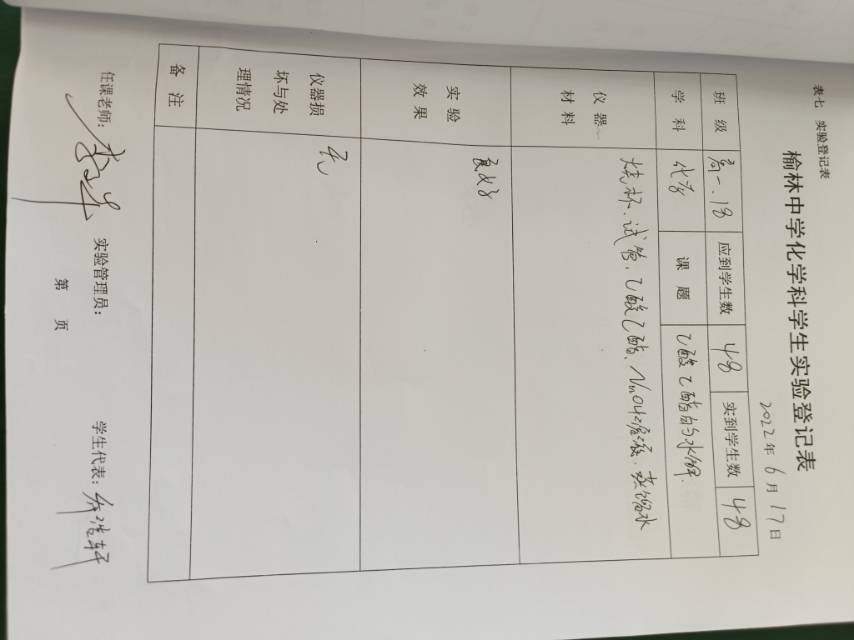 表七 实验登记表
榆林中学化学科学生实验登记表
2022年6月17日
班级 高一.18 应到学生数 48 实到学生数 48
学科 化学 课题 乙酸乙酯的水解.
仪器材料 烧杯、试管、乙酸乙酯、NaOH溶液、蒸馏水
实验效果 良好
仪器损坏与处理情况 无
备注
任课老师: 实验管理员: 学生代表:
第 页